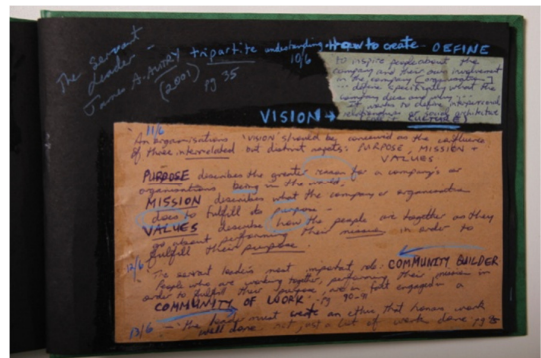 The Servant
Leader -
James A. AUTRY
(2001)
pg 35
tripartite understanding. How to create - DEFINE
10/6
to inspire people about the
company and their own involvement
in the company [organisation]
... define specifically what the
company does and why...
VISION →
11/6
An organisations 'VISION' should be conceived as the confluence
of three interrelated but distinct aspects: PURPOSE, MISSION +
VALUES
PURPOSE describes the greater reason for a company's or
organisations being in the world.
MISSION describes what the company or organisation
does to fulfill its purpose -
VALUES describe how the people are together as they
go about performing their mission in order to
fulfill their purpose.
12/6
To servant leader's most important role: COMMUNITY BUILDER
People who are working together, performing their mission in
order to fulfill their purpose, are in fact engaged in a
COMMUNITY OF WORK. pg
13/6 - the leader must create an ethos that honors work
well done not just a lot of work done pg 35